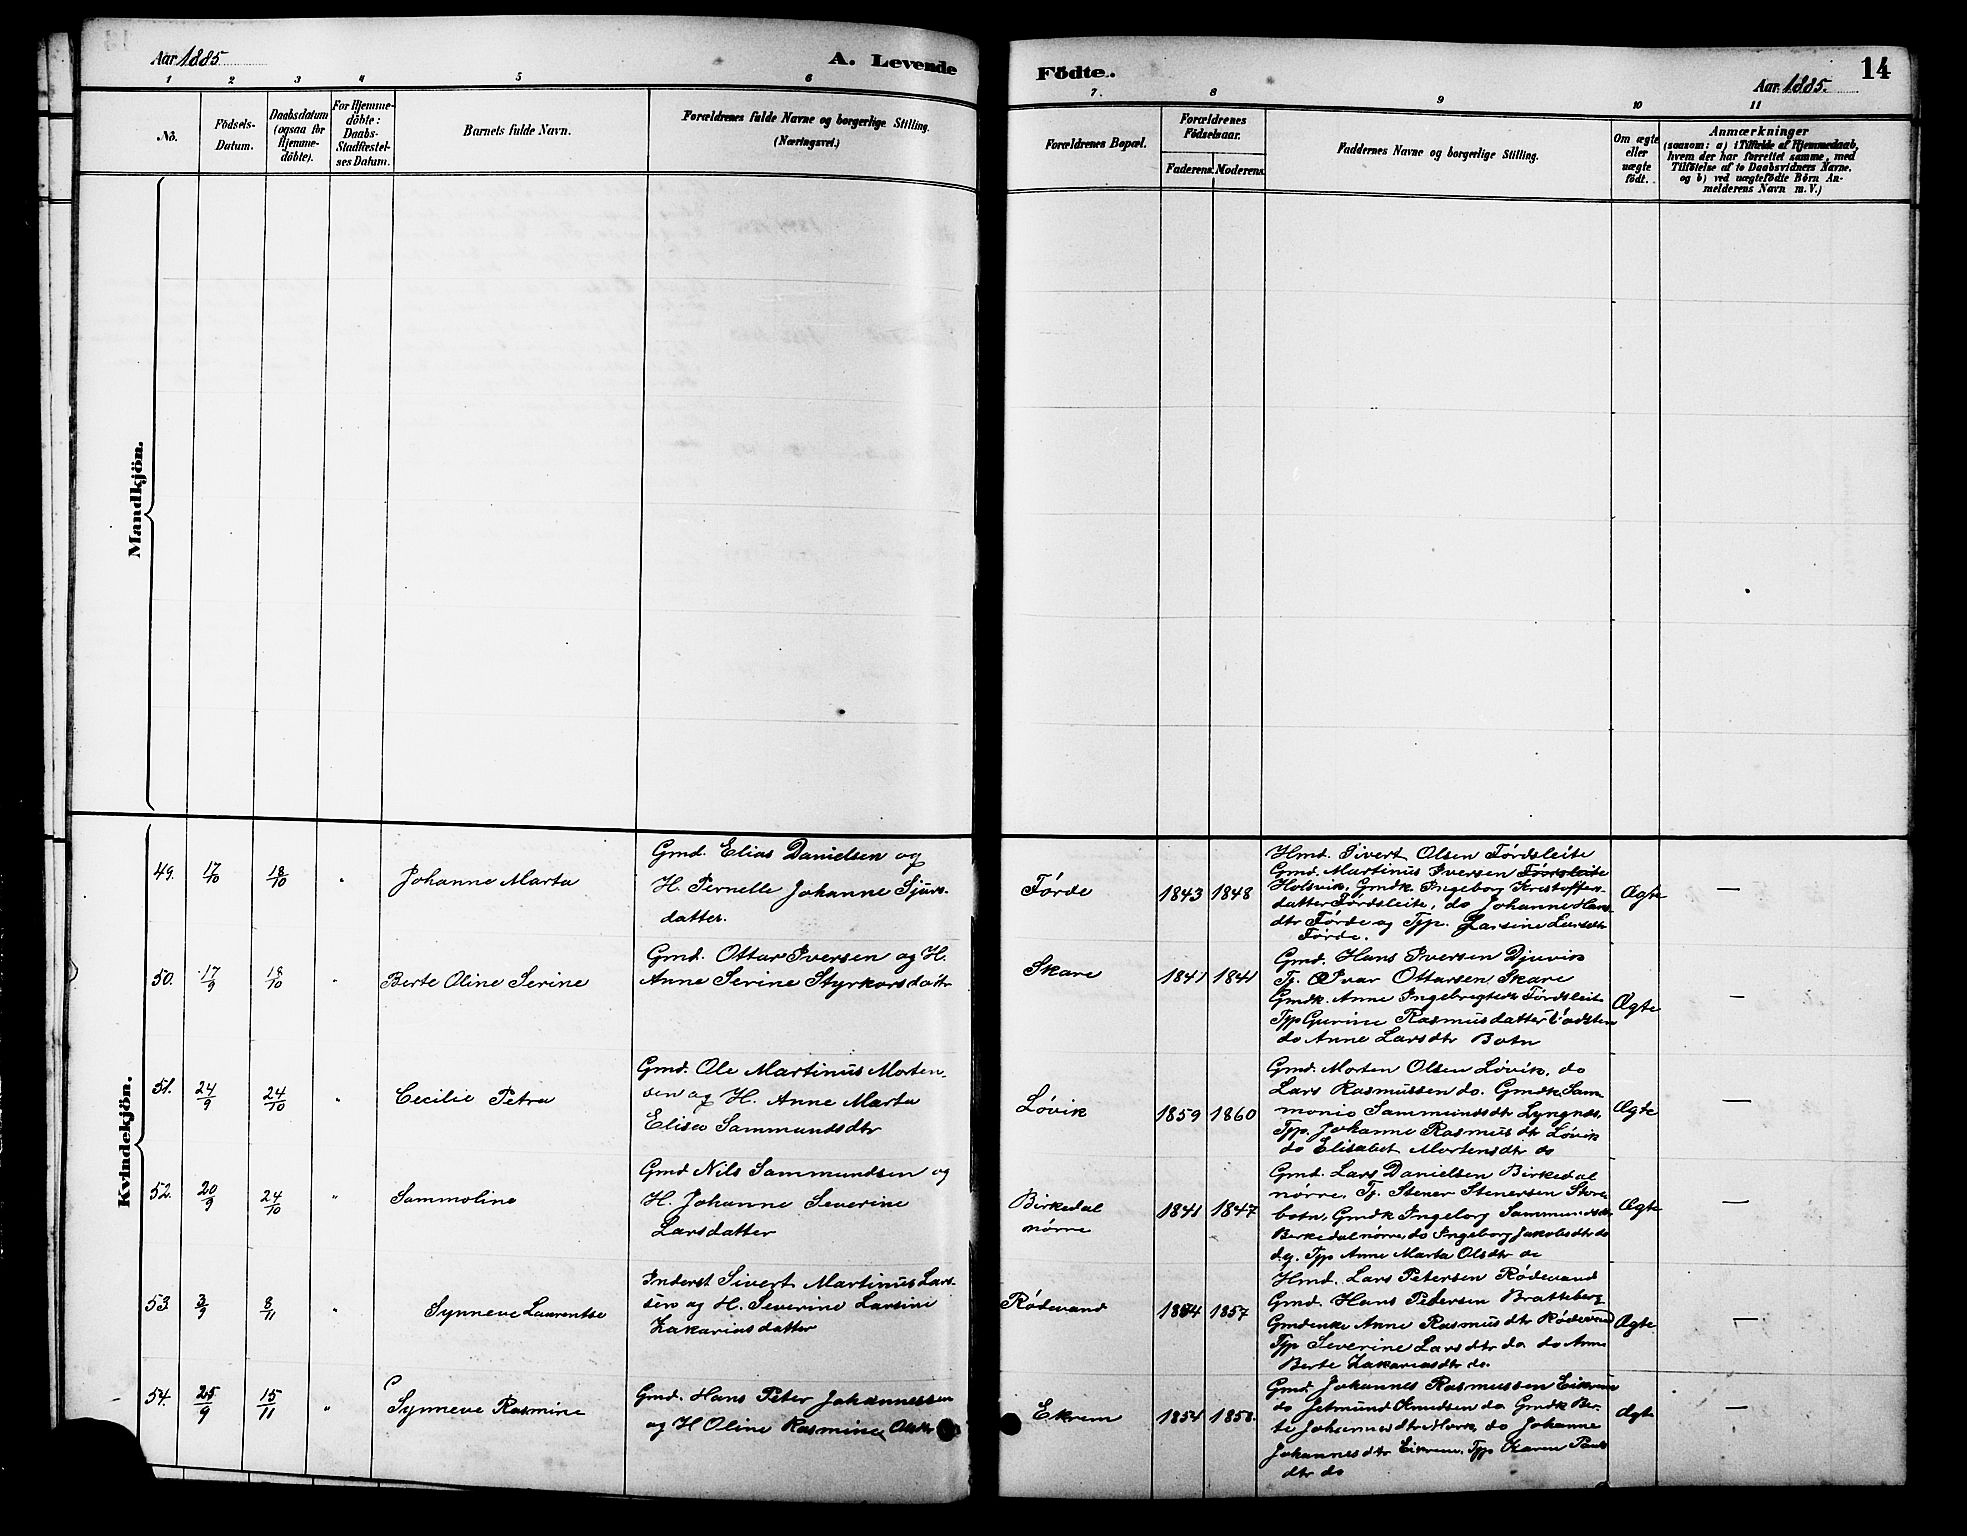 Aar 1885
A. Levende
Födte.
14
Aar 1885.
1 2 3 4 5 6
7. 8 9 10 11
No.
Födsels-
Datum.
Daabsdatum
(ogsaa for
Hjemme-
döbte).
For Hjemme-
döbte:
Daabs-
Stadfæstel-
ses Datum.
Barnets fulde Navn.
Forældrenes fulde Navne og borgerlige Stilling.
(Næringsvei.)
Forældrenes Bopæl.
Forældrenes
Födselsaar.
Faderens. Moderens.
Faddernes Navne og borgerlige Stilling.
Om ægte
eller
uægte
födt.
Anmærkninger
(saasom: a) i Tilfælde af Hjemmedaab,
hvem der har forrettet samme, med
Tilföielse af to Daabsvidners Navne.
og b) ved uægtefödte Börn An-
melderens Navn m. V.)
Mandkjön.
Kvindekjön.
49. 17/10 18/10 "
Johanne Marta
Gmd. Elias Danielsen og
H. Pernelle Johanne Sjurs-
datter.
Førde 1843 1848
Hmd. Sivert Olsen Førdsleite
Gmd. Martinus Iversen Førdsleite
Holsvik, Gmdk. Ingeborg Kristoffers-
datter Førdsleite, do Johanne Hans
dtr Førde og Typ. Larsine Larsdtr
Førde.
Ægte —
50. 17/9 18/10 "
Berte Oline Serine
Gmd. Ottar Iversen og H.
Anne Serine Styrkorsdattr
Skare 1841 1841
Gmd. Hans Iversen Djuvik
Tj. Ivar Ottarsen Skare
Gmdk. Anne Ingebregtsdtr Førdsleit
Typ Gurine Rasmusdatter
do Anne Larsdtr Botn
Ægte —
51. 24/9 24/10 "
Cecilie Petra
Gmd. Ole Martinus Morten-
sen og H. Anne Marta
Elisa Sammundsdtr
Løvik 1859 1860
Gmd. Morten Olsen Løvik, do
Lars Rasmussen do. Gmdk. Sam-
monie Sammundsdtr Lyngnes,
Typ. Johanne Rasmusdtr Løvik
do Elisabet Mortensdtr do
Ægte —
52. 20/9 24/10 "
Sammoline
Gmd Nils Sammundsen og
H. Johanne Severine
Larsdatter
Birkedal
nørre
1841 1847
Gmd. Lars Danielsen Birkedal
nørre, Tj. Stener Stenersen Store
botn, Gmdk Ingeborg Sammundsdtr
Berkedal nørre, do Ingeborg Jakobsdtr do
d.y. Typ Anne Marta Olsdtr do
Ægte —
53 3/9 8/11 "
Synneve Laurentse
Inderst Sivert Martinus Lars-
sen og H. Severine Larsine
Zakariasdatter
Rødevand 1854 1857
Hmd. Lars Petersen Rødevand
Gmd. Hans Pedersen Bratteberg
Gmdenke Anne Rasmusdtr Rødevand
Typ Severine Larsdtr do do Anne
Berte Zakariasdtr do.
Ægte —
54. 25/9 15/11 "
Synneve Rasmine
Gmd. Hans Peter Johannessen
og H Oline Rasmine Olsdtr
Ekrem 1854 1858.
Gmd. Johannes Rasmussen Eikrem
do Jetmund Knudsen do Gmdk Ber-
te Johannesdtr Mork, do Johanne
Johannesdtr Eikrem, Typ Karen Pauls
dtr do
Ægte —